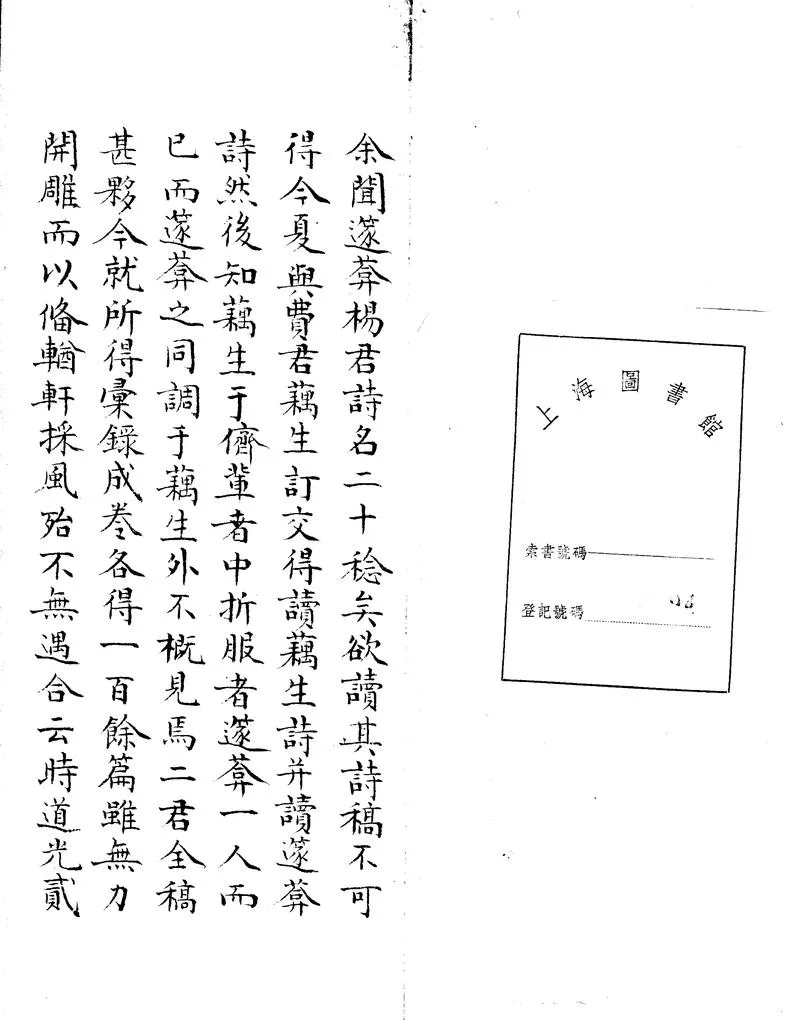 上海圖書館
索書號碼
登記號碼
余聞邃葊楊君詩名二十稔矣欲讀其詩稿不可
得今夏與費君藕生訂交得讀藕生詩并讀邃葊
詩然後知藕生于儕輩者中折服者邃葊一人而
已而邃葊之同調于藕生外不概見焉二君全稿
甚夥今就所得彙錄成卷各得一百餘篇雖無力
開雕而以俻輶軒採風殆不無遇合云時道光貳